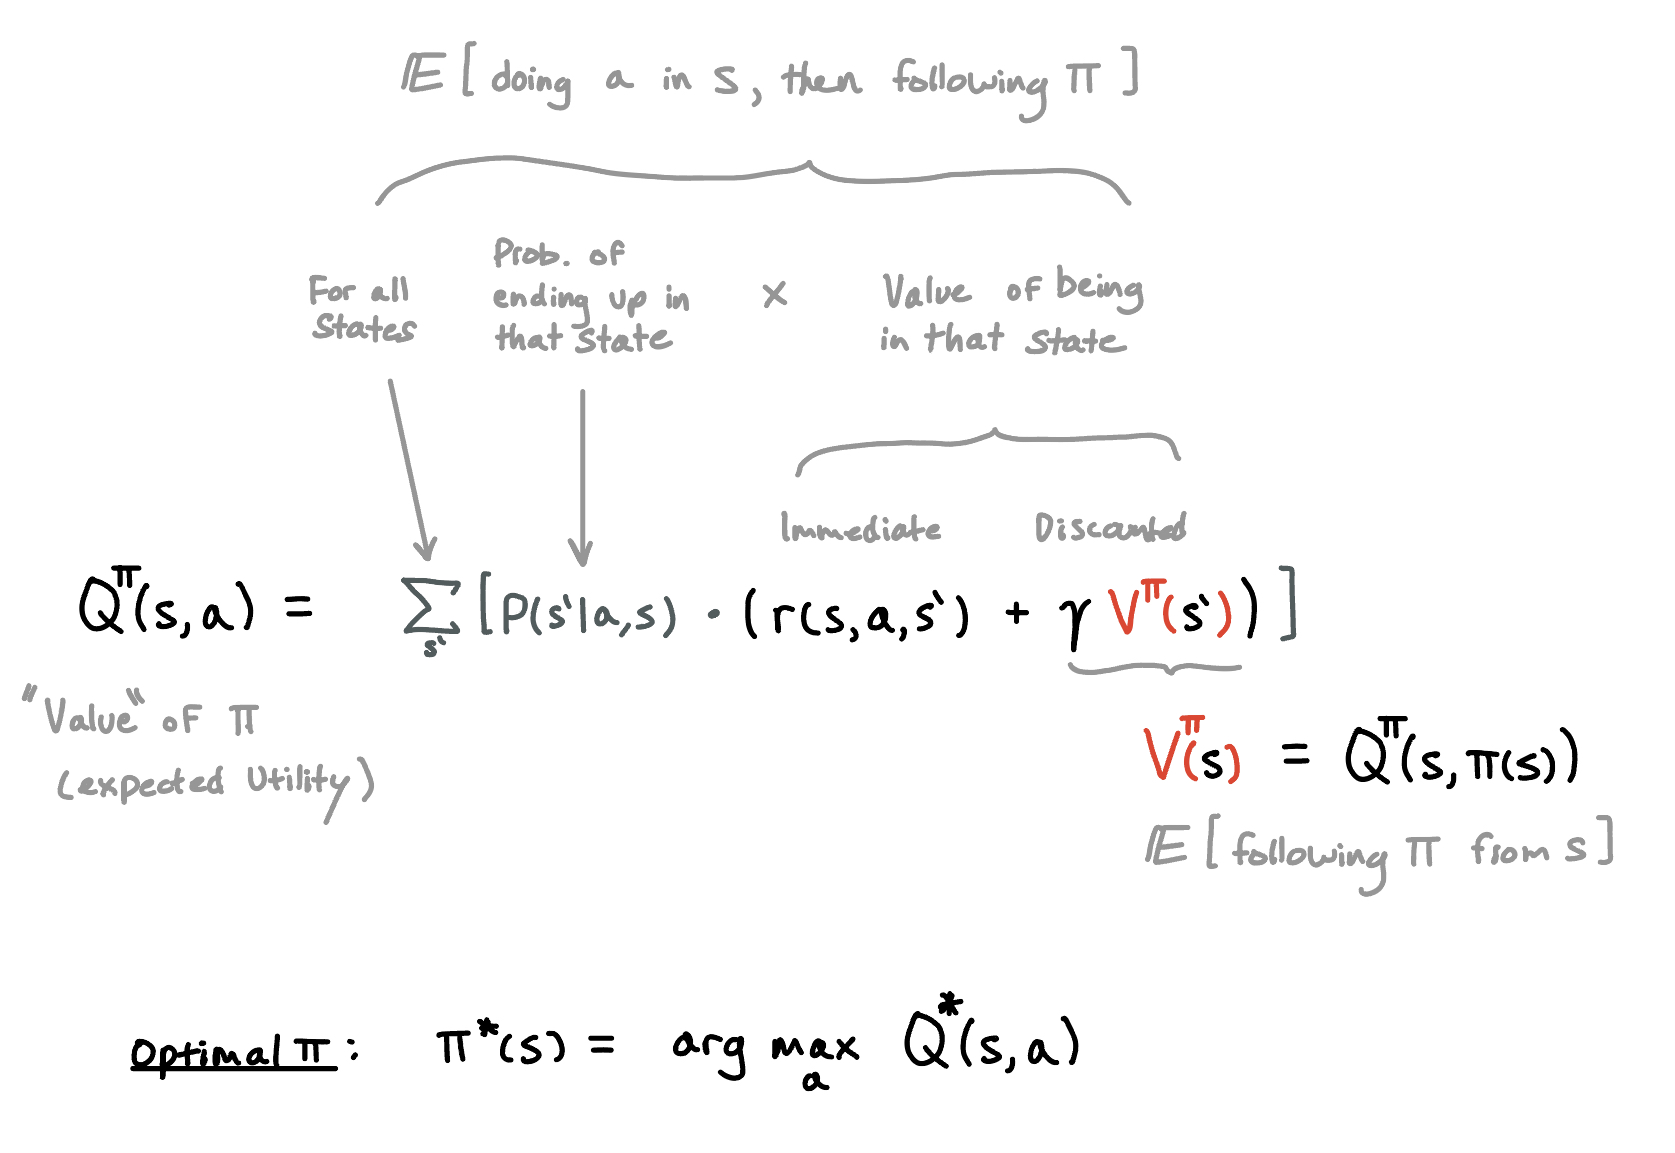 𝔼 [ doing a in s, then following π ]
For all
states
Prob. of
ending up in
that state
×
Value of being
in that state
Immediate
Discounted
Q^π(s,a) = Σ_s' [ P(s'|a,s) · ( r(s,a,s') + γ V^π(s') ) ]
"Value" of π
(expected utility)
V^π(s) = Q^π(s, π(s))
𝔼 [ following π from s ]
Optimal π : π*(s) = arg max_a Q*(s,a)